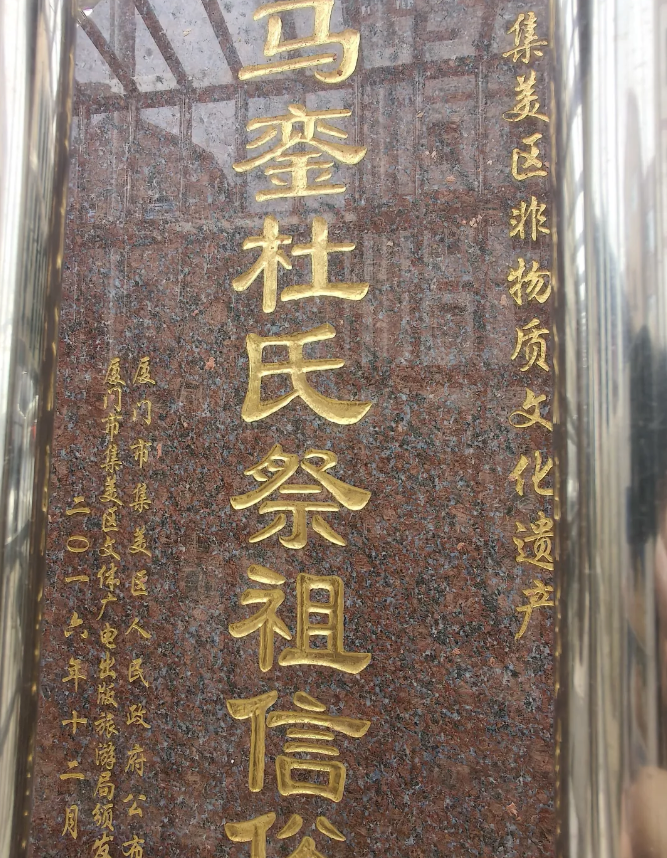 集美区非物质文化遗产
马銮杜氏祭祖信俗
厦门市集美区人民政府公布
厦门市集美区文体广电出版旅游局颁发
二〇一六年十二月